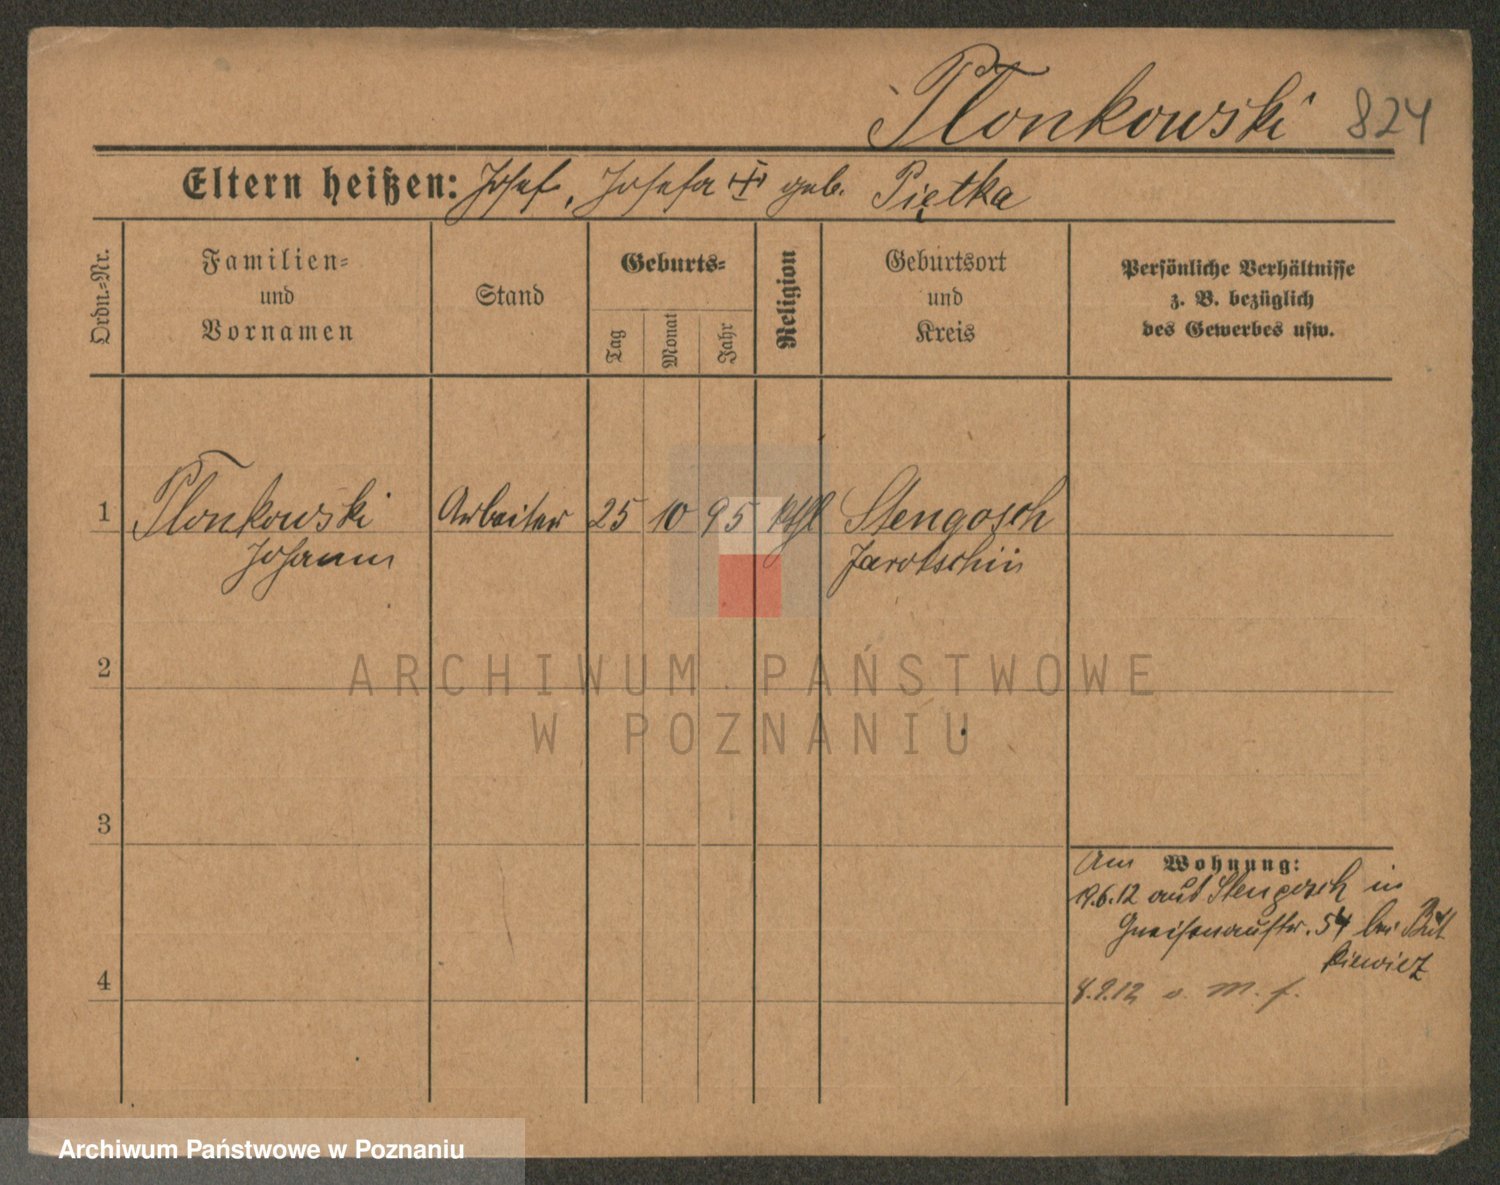 Plonkowski 824
Eltern heißen: Josef, Josefa geb. Piętka
Ordn.-Nr.
Familien-
und
Vornamen
Stand
Geburts-
Tag
Monat
Jahr
Religion
Geburtsort
und
Kreis
Persönliche Verhältnisse
z. B. bezüglich
des Gewerbes usw.
1 Plonkowski Arbeiter 25 10 95 kthl Stengosch
Johann Jarotschin
2
3
4
Wohnung:
Am
19.6.12 aus Stengosch in
Gneisenaustr. 54 bei But
kiewicz
8.9.12 o. M. f.
ARCHIWUM PAŃSTWOWE
W POZNANIU
Archiwum Państwowe w Poznaniu